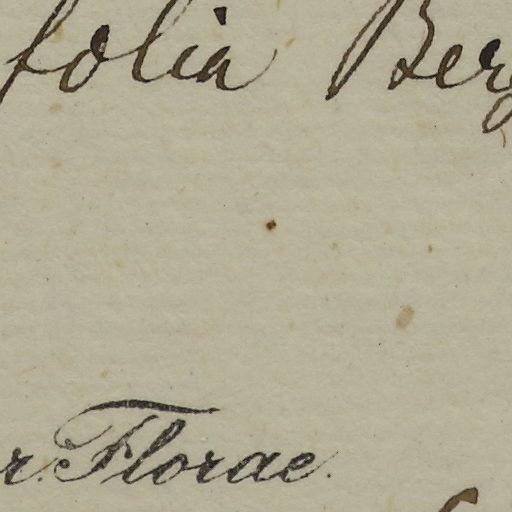 folia Berg
r. Florae.